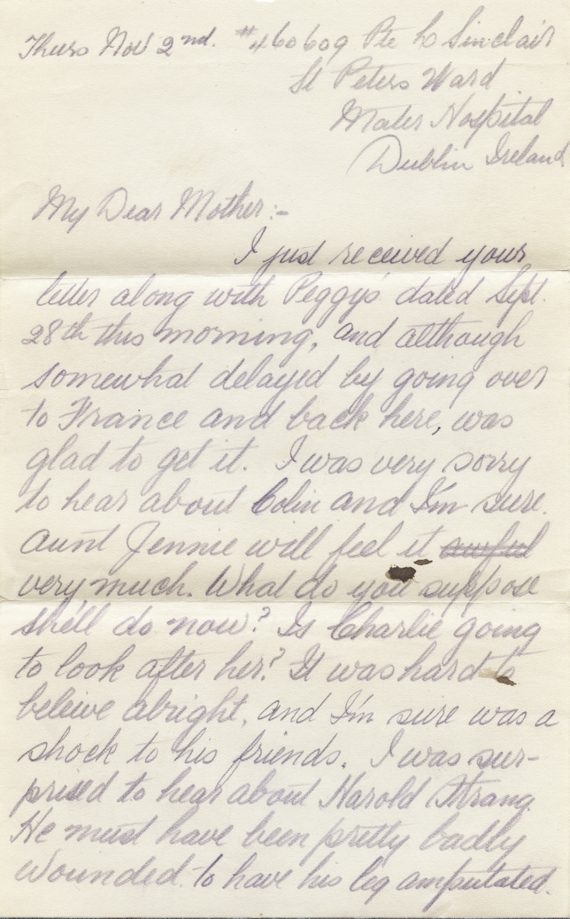 Thurs Nov 2nd. #460609 Pte L Sinclair
St Peters Ward
Mater Hospital
Dublin Ireland
My Dear Mother:-
I just received your
letter along with Peggy's dated Sept.
28th this morning, and although
somewhat delayed by going over
to France and back here, was
glad to get it. I was very sorry
to hear about Colin and I'm sure
Aunt Jennie will feel it awful
very much. What do you suppose
she'll do now? Is Charlie going
to look after her? It was hard to
beleive alright, and I'm sure was a
shock to his friends. I was sur-
prised to hear about Harold Strang.
He must have been pretty badly
wounded to have his leg amputated.